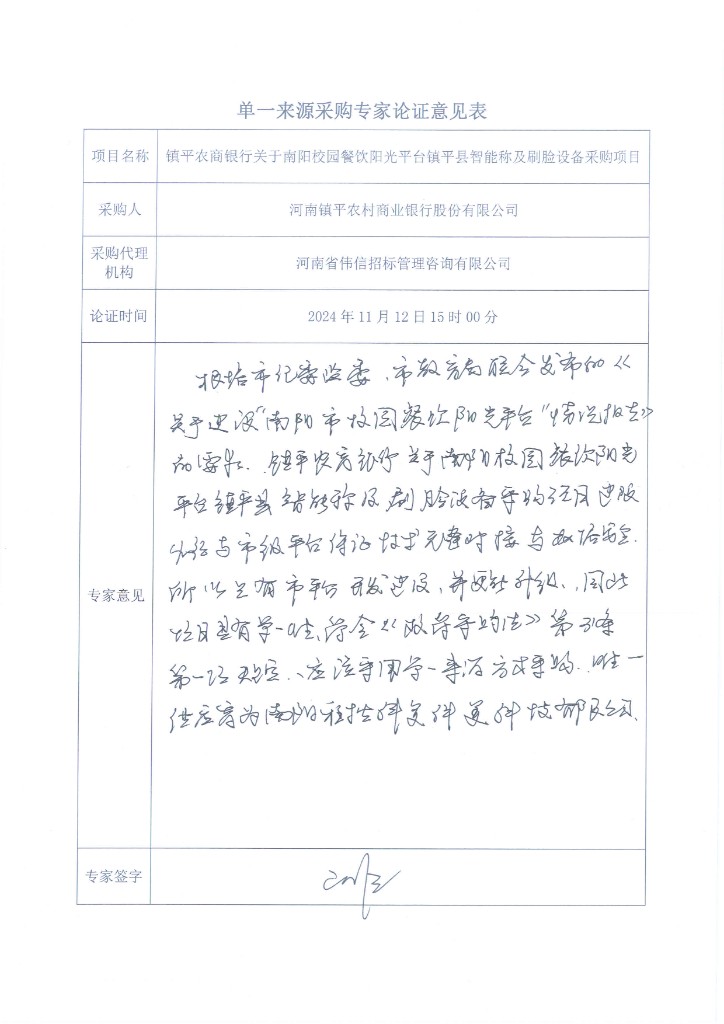 单一来源采购专家论证意见表
项目名称 镇平农商银行关于南阳校园餐饮阳光平台镇平县智能称及刷脸设备采购项目
采购人 河南镇平农村商业银行股份有限公司
采购代理机构 河南省伟信招标管理咨询有限公司
论证时间 2024年11月12日15时00分
专家意见
根据市纪委监委、市教育局联合发布的《
关于建设"南阳市校园餐饮阳光平台"情况报告》
的要求、镇平农商银行关于南阳校园餐饮阳光
平台镇平县智能称及刷脸设备采购项目建设
必须与市级平台保证技术无缝对接与数据安全.
所以只有市平台开发建设、并更新升级、因此
项目具有单一性,符合《政府采购法》第31条
第一项规定、应该采用单一来源方式采购.唯一
供应商为南阳
专家签字